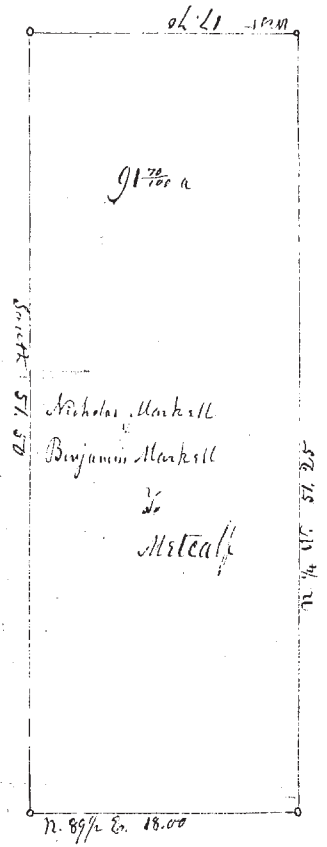 West 17.70
91 70/100 a
South 51.50
Nicholas Markell
&
Benjamin Markell
To
Metcalf
N. 1/4 W. 51.25
N. 89 1/2 E. 18.00